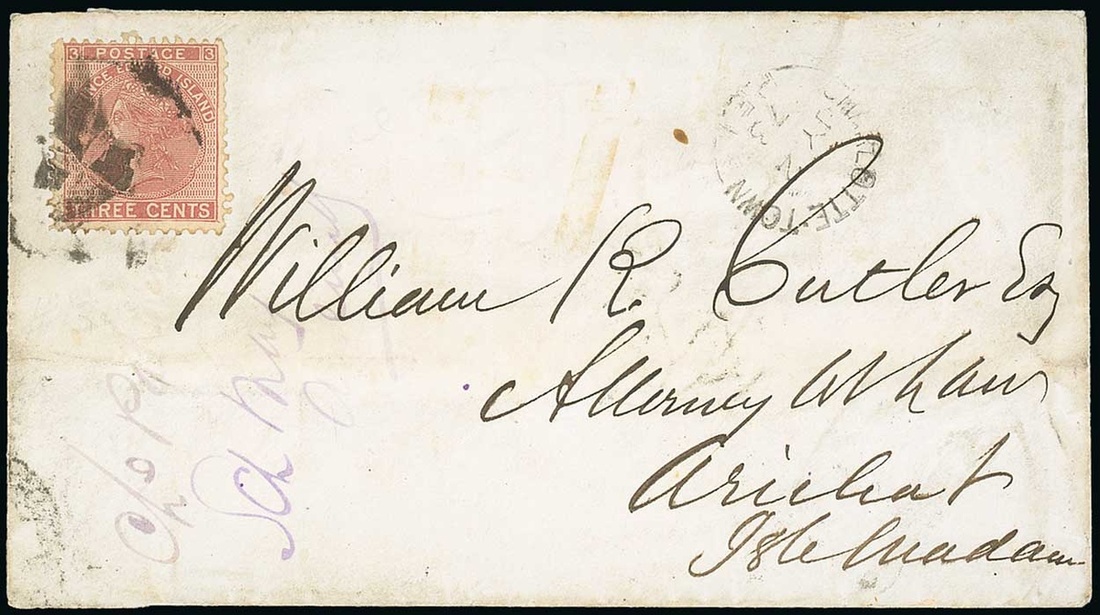 3 POSTAGE 3
PRINCE EDWARD ISLAND
THREE CENTS
CHARLOTTE-TOWN
JY
William R. Cutler Esq
Attorney at Law
Arichat
Isle Madam